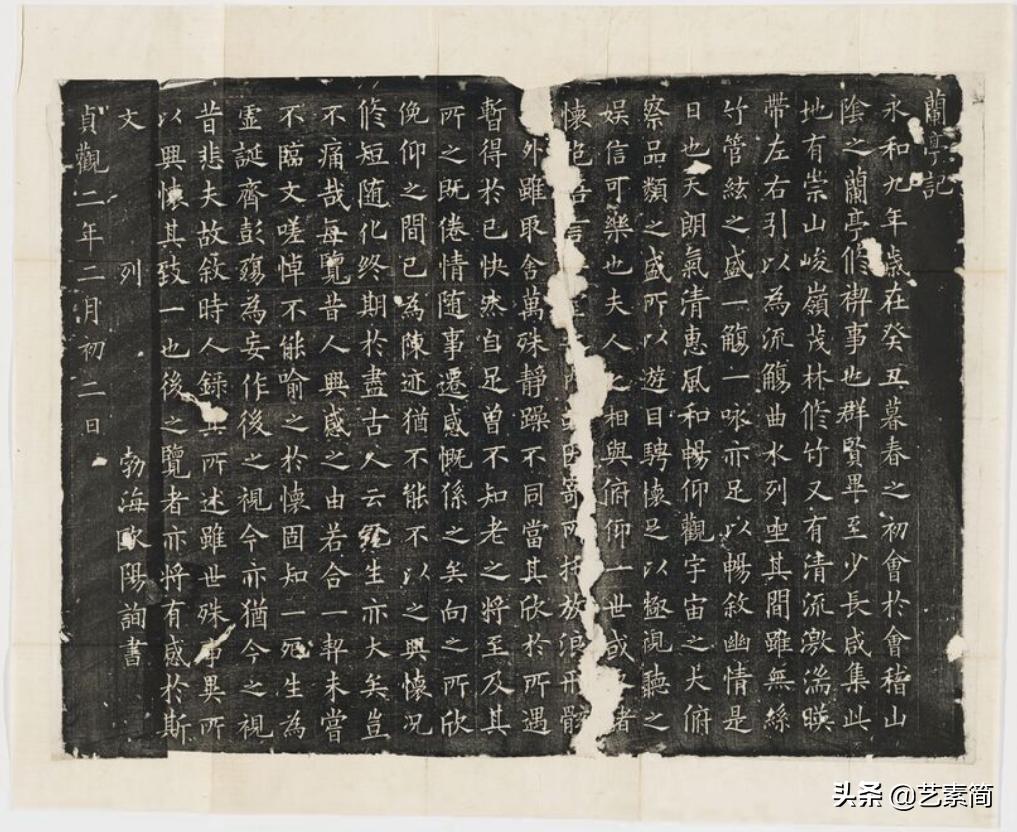 蘭亭記
永和九年歲在癸丑暮春之初會於會稽山
陰之蘭亭修禊事也群賢畢至少長咸集此
地有崇山峻嶺茂林修竹又有清流激湍暎
帶左右引以為流觴曲水列坐其間雖無絲
竹管絃之盛一觴一咏亦足以暢敘幽情是
日也天朗氣清惠風和暢仰觀宇宙之大俯
察品類之盛所以遊目騁懷足以極視聽之
娛信可樂也夫人之相與俯仰一世或諸
懷 言 因寄所托放浪形骸
外雖取舍萬殊靜躁不同當其欣於所遇
暫得於已快然自足曾不知老之將至及其
所之既倦情隨事遷感慨係之矣向之所欣
俛仰之間已為陳迹猶不能不以之興懷況
修短随化終期於盡古人云死生亦大矣豈
不痛哉每覽昔人興感之由若合一契未嘗
不臨文嗟悼不能喻之於懷固知一死生為
虛誕齊彭殤為妄作後之視今亦猶今之視
昔悲夫故敘時人錄其所述雖世殊事異所
以興懷其致一也後之覽者亦将有感於斯
文 列 勃海歐陽詢書
貞觀二年二月初二日
头条 @艺素简